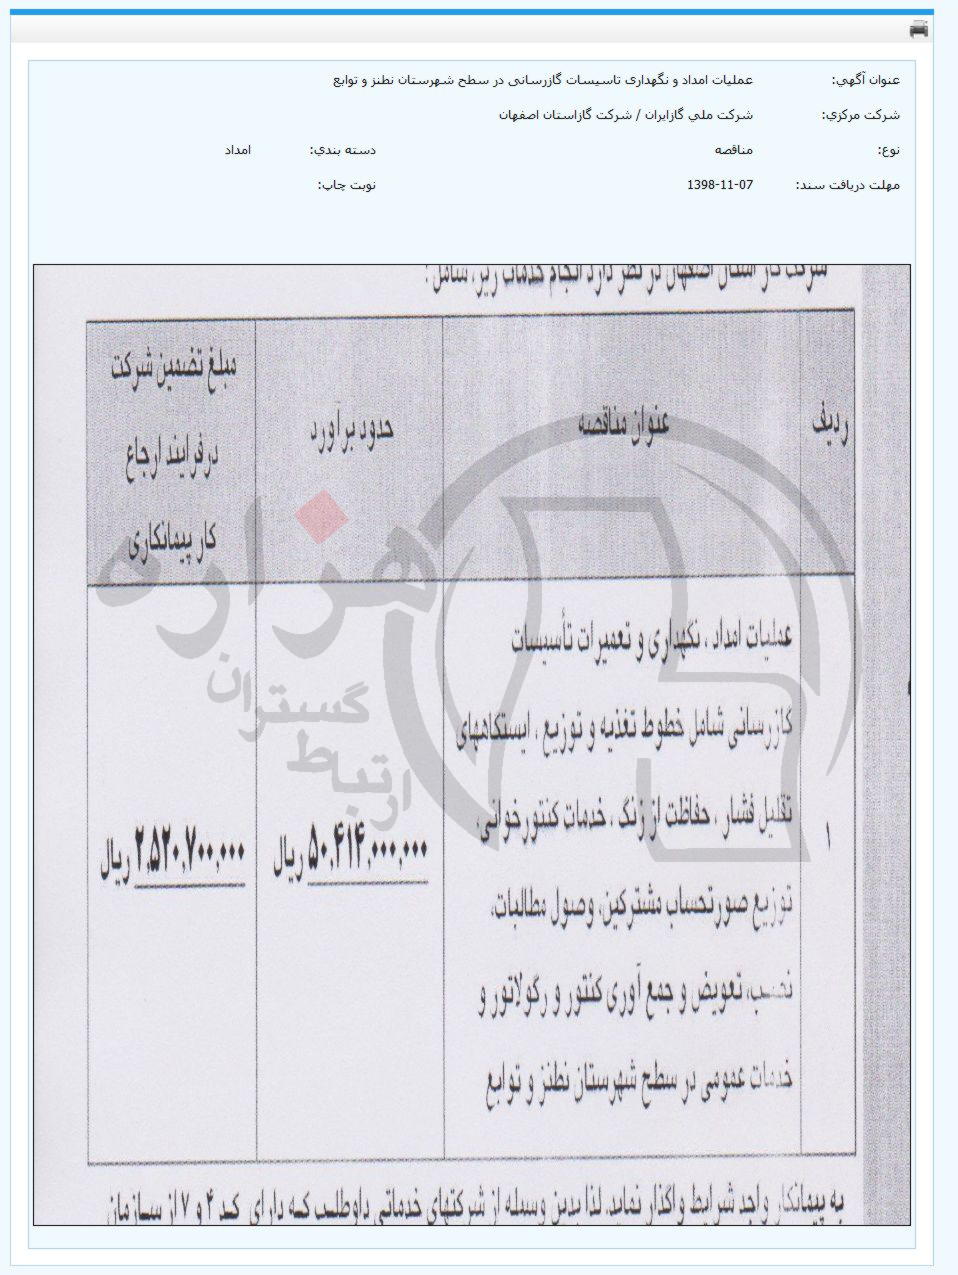 عنوان آگهي: عملیات امداد و نگهداری تاسیسات گازرسانی در سطح شهرستان نطنز و توابع
شرکت مرکزي: شرکت ملي گازايران / شرکت گازاستان اصفهان
نوع: مناقصه دسته بندي: امداد
مهلت دریافت سند: 1398-11-07 نوبت چاپ:
شرکت گاز استان اصفهان در نظر دارد انجام خدمات زیر، شامل:
ردیف
عنوان مناقصه
حدود برآورد
مبلغ تضمین شرکت
درفرایند ارجاع
کار پیمانکاری
۱
عملیات امداد ، نگهداری و تعمیرات تأسیسات
گازرسانی شامل خطوط تغذیه و توزیع ، ایستگاههای
تقلیل فشار ، حفاظت از زنگ ، خدمات کنتورخوانی،
توزیع صورتحساب مشترکین، وصول مطالبات،
نصب، تعویض و جمع آوری کنتور و رگولاتور و
خدمات عمومی در سطح شهرستان نطنز و توابع
۵۰,۴۱۴,۰۰۰,۰۰۰ ریال
۲,۵۲۰,۷۰۰,۰۰۰ ریال
به پیمانکار واجد شرایط واگذار نماید. لذا بدین وسیله از شرکتهای خدماتی داوطلب که دارای کد ۴ و ۷ از سازمان
هزاره
گستران
ارتباط